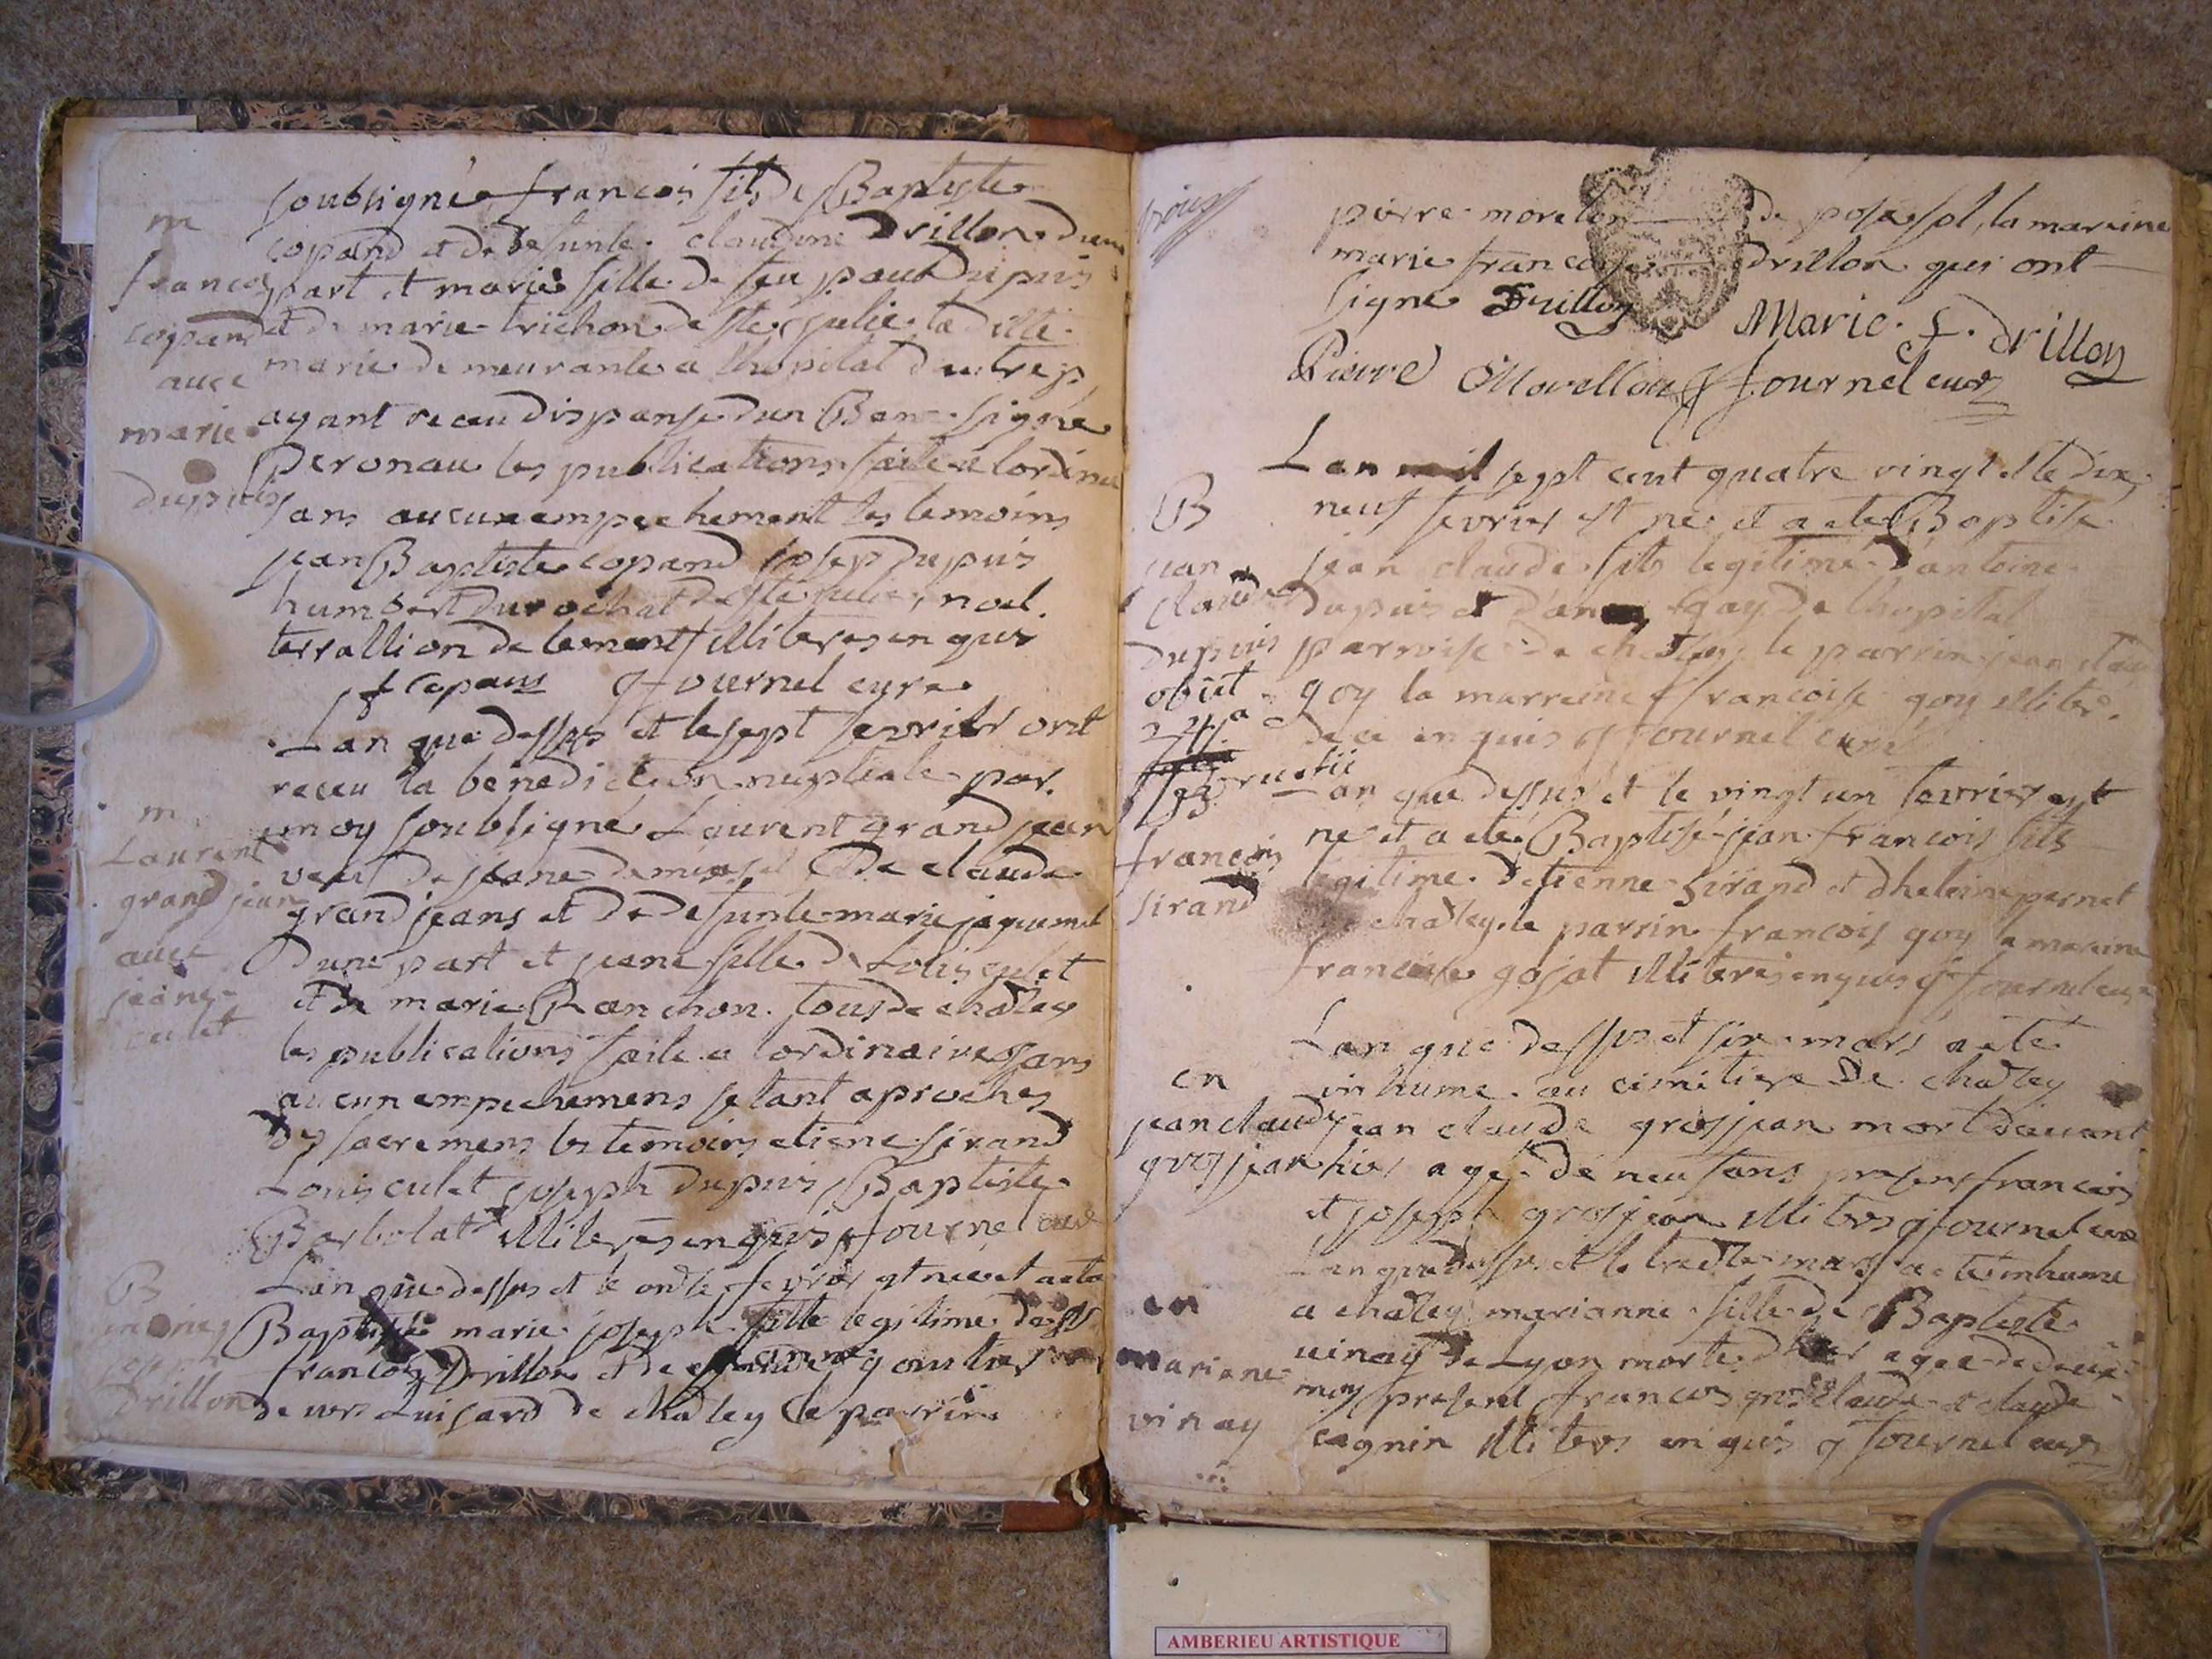 soubsigné francois fils de Baptyste
copand et de defunte claudine Drillon dune
part et marie fille de feu paul Dupuis
et de marie trichon de ste julie la ditte
marie demeurante a lhopital
ayant receu dispanse dun Ban signé
peronau les publications faite a lordine
sans aucun empechement les temoins
jean Baptiste copand josep Dupuis
humbert Durochat de ste julie, noel
terallion de lement illiteres enquis
f copans gj fournel cure
m
francois
copand
avec
marie
dupuis
Lan que dessus et le sept fevrier ont
receu la benediction nuptiale par
moy soubsigné Laurent grand jean
veuf de jeane fils de claude
grand jeans et de defunte marie jaquemet
Dune part et jeane fille de Louis culet
et de marie Ranchon tous de chaley
les publications faite a lordinaire sans
aucun empechemens setant aproches
des sacremens les temoins etiene sirand
Louis culet joseph Dupuis Baptiste
Barbolat illiteres enquis fournel cure
m
Laurent
grand jean
avec
jeane
culet
Lan que dessus et le onze fevrier est nee et a ete
Baptisée marie joseph fille legitime de sr
francois Drillon et de anne goutier
de chaley le parrin
B
marie
joseph
Drillon
pierre morelon de la marine
marie francoise Drillon qui ont
signe Drillon
Marie f. drillon
Pierre Morellon gj fournel cure
Lan mil sept cent quatre vingt et le dix
neuf fevrier est né et a ete Baptise
jean claude fils legitime dantoine
dupuis et danne goy de lhopital
parroise de chaley le parrin jean claude
goy la marreine francoise goy illiteré
de ce enquis gj fournel curé
B
jean
claude
dupuis
obiit
Lan que dessus et le vingt un fevrier est
né et a eté Baptisé jean francois fils
legitime detienne Sirand et dheleine pernet
de chaley le parrin francois goy la mareine
francoise gojat illiteres enquis gj fournel cure
B
francois
sirand
Lan que dessus et six mars a ete
inhume au cimitiere de chaley
jean claude grosjean mort davant
hier agé de neuf ans presens francois
et joseph grosjean illiteres gj fournel cure
en
jean claude
grosjean
Lan que dessus et le treize mars a ete inhume
a chaley marianne fille de Baptiste
vinay de Lyon morte dhier agee de deux
moy present francois grosclaude et claude
cagnin illiteres enquis gj fournel cure
en
mariane
vinay
AMBERIEU ARTISTIQUE